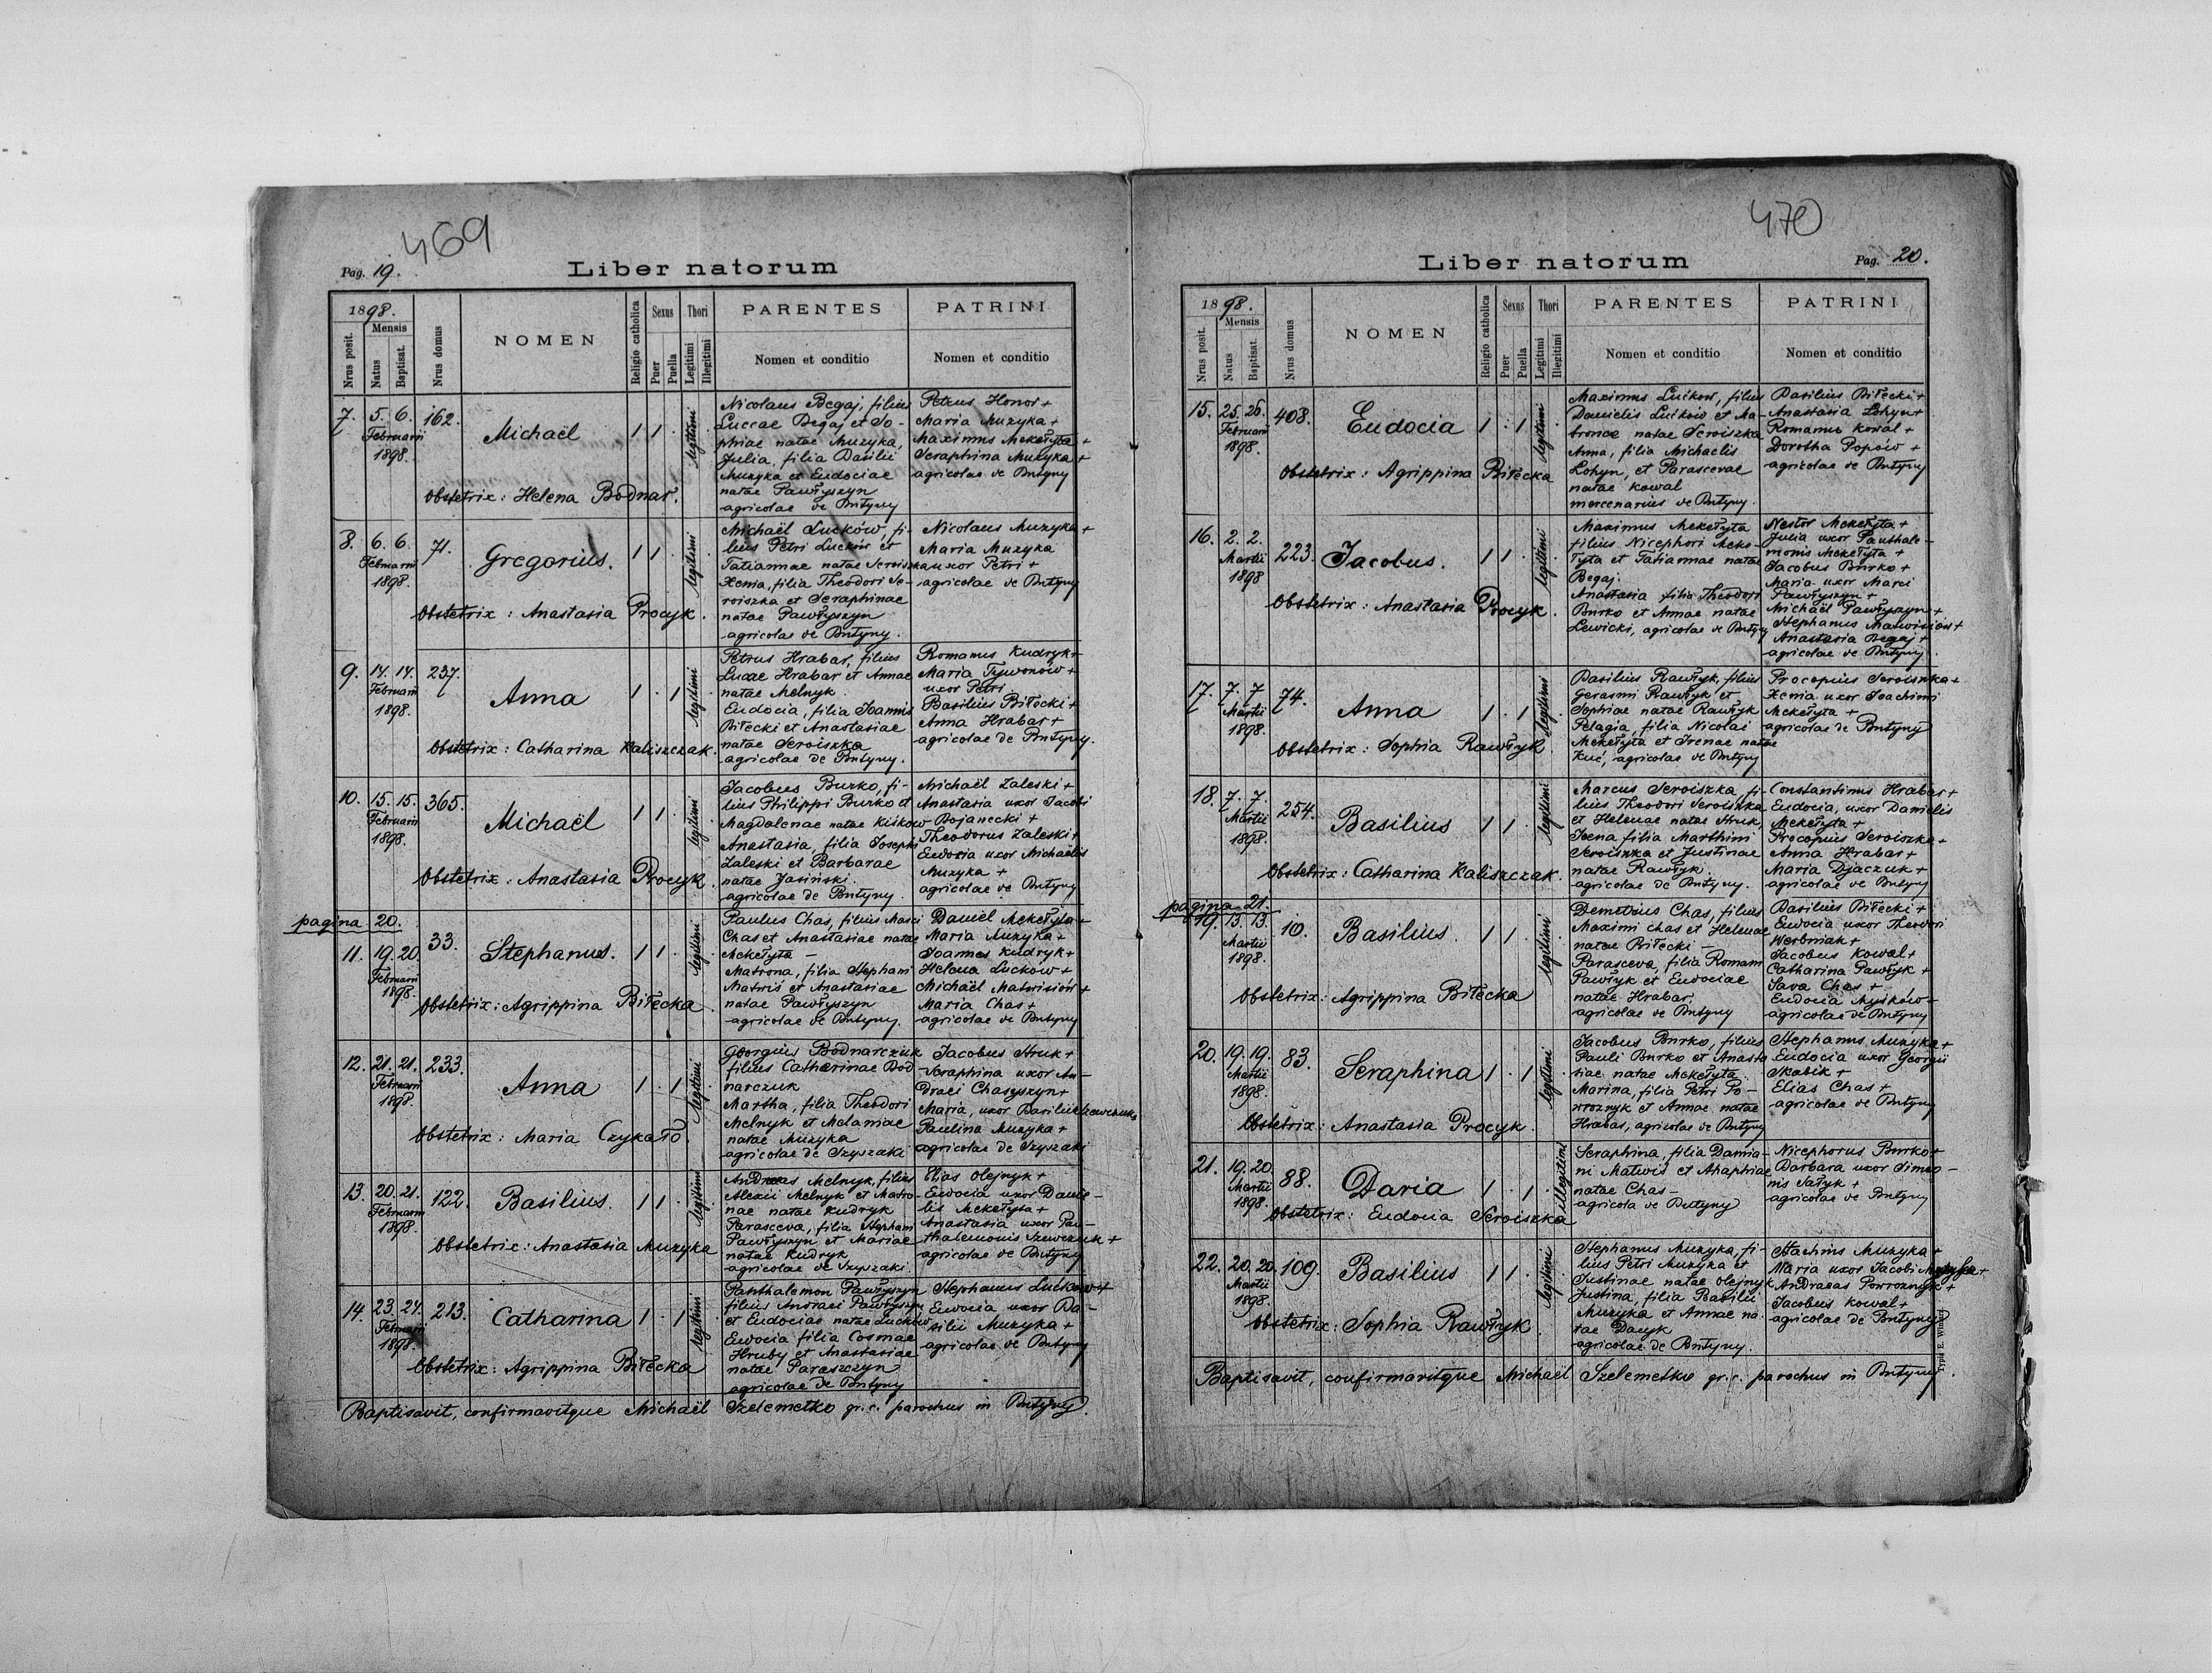 469
Pag. 19.
Liber natorum
1898.
Mensis
Nrus posit.
Natus
Baptisat.
Nrus domus
NOMEN
Religio catholica
Sexus
Puer
Puella
Thori
Legitimi
Illegitimi
PARENTES
Nomen et conditio
PATRINI
Nomen et conditio
7. 5. 6. Februarii 1898. 162.
Michaël 1 1 . legitimi
Obstetrix: Helena Bodnar.
Nicolaus Begaj, filius
Luccae Begaj et So-
phiae natae Muzyka,
Julia, filia Basilii
Muzyka et Eudociae
natae Pawłyszyn
agricolae de Butyny
Petrus Honor +
Maria Muzyka +
Maximus Mekełyta +
Seraphina Muzyka +
agricolae de Butyny
8. 6. 6. Februarii 1898. 71.
Gregorius. 1 1 . legitimi
Obstetrix: Anastasia Procyk.
Michaël Luckow, fi-
lius Petri Luckow et
Tatiannae natae Seroiszka
Xenia, filia Theodori Se-
roiszka et Seraphinae
natae Pawłyszyn
agricolae de Butyny.
Nicolaus Muzyka +
Maria Muzyka
uxor Petri +
agricolae de Butyny
9. 14. 14. Februarii 1898. 237.
Anna 1 . 1 legitimi
Obstetrix: Catharina Kaliszczak.
Petrus Hrabar, filius
Lucae Hrabar et Annae
natae Melnyk.
Eudocia, filia Joannis
Biłecki et Anastasiae
natae Seroiszka
agricolae de Butyny.
Romanus Kudryk +
Maria Tywonów +
uxor Petri
Basilius Biłecki +
Anna Hrabar +
agricolae de Butyny.
10. 15. 15. Februarii 1898. 365.
Michaël 1 1 . legitimi
Obstetrix: Anastasia Procyk.
Jacobus Burko, fi-
lius Philippi Burko et
Magdalenae natae Kiśkow
Anastasia, filia Josephi
Zaleski et Barbarae
natae Jasiński.
agricolae de Butyny.
Michaël Zaleski +
Anastasia uxor Jacobi
Bojanecki +
Theodorus Zaleski +
Eudocia uxor Michaëlis
Muzyka +
agricolae de Butyny
pagina 20.
11. 19. 20. Februarii 1898. 33.
Stephanus. 1 1 . legitimi
Obstetrix: Agrippina Biłecka
Paulus Chas, filius Marci
Chas et Anastasiae natae
Mekełyta -
Matrona, filia Stephani
Matwis et Anastasiae
natae Pawłyszyn
agricolae de Butyny.
Daniël Mekełyta +
Maria Muzyka +
Joannes Kudryk +
Helena Luckow +
Michaël Matwisiów +
Maria Chas +
agricolae de Butyny
12. 21. 21. Februarii 1898. 233.
Anna 1 . 1 legitimi
Obstetrix: Maria Czykało.
Georgius Bodnarczuk
filius Catharinae Bod
narczuk
Martha, filia Theodori
Melnyk et Melaniae
natae Muzyka
agricolae de Szyszaki
Jacobus Hruk +
Seraphina uxor An-
draei Chasyszyn +
Maria, uxor Basilii Szewczuk
Paulina Muzyka +
agricolae de Szyszaki
13. 20. 21. Februarii 1898. 122.
Basilius. 1 1 . legitimi
Obstetrix: Anastasia Muzyka
Andreas Melnyk, filius
Alexii Melnyk et Matro-
nae natae Kudryk
Parasceva, filia Stephani
Pawłyszyn et Mariae
natae Kudryk
agricolae de Szyszaki
Elias Olejnyk +
Eudocia uxor Danie-
lis Mekełyta +
Anastasia uxor Pan-
thalemonis Szewczuk +
agricolae de Butyny
14. 23. 24. Februarii 1898. 213.
Catharina 1 . 1 legitimi
Obstetrix: Agrippina Biłecka
Panthalemon Pawłyszyn
filius Andraei Pawłyszyn
et Eudociae natae Luckow
Eudocia filia Cosmae
Hruby et Anastasiae
natae Paraszczyn
agricolae de Butyny
Stephanus Luckow +
Eudocia uxor Ba-
silii Muzyka +
agricolae de Butyny
Baptisavit, confirmavitque Michaël Szelemetko gr. c. parochus in Butyny.
470
Liber natorum
Pag. 20.
1898.
Mensis
Nrus posit.
Natus
Baptisat.
Nrus domus
NOMEN
Religio catholica
Sexus
Puer
Puella
Thori
Legitimi
Illegitimi
PARENTES
Nomen et conditio
PATRINI
Nomen et conditio
15. 25. 26. Februarii 1898. 408.
Eudocia 1 . 1 legitimi
Obstetrix: Agrippina Biłecka
Maximus Luckow, filius
Danielis Luckow et Ma-
tronae natae Seroiszka
Anna, filia Michaelis
Lohyn, et Parascevae
natae Kowal
mercenarius de Butyny.
Basilius Biłecki +
Anastasia Lohyn +
Romanus Kowal +
Dorotha Popów +
agricolae de Butyny
16. 2. 2. Martii 1898. 223.
Jacobus. 1 1 . legitimi
Obstetrix: Anastasia Procyk.
Maximus Mekełyta
filius Nicephori Meke-
łyta et Tatiannae natae
Begaj.
Anastasia filia Theodori
Burko et Annae natae
Lewicki, agricolae de Butyny
Nestor Mekełyta +
Julia uxor Panthale-
monis Mekełyta +
Jacobus Burko +
Maria uxor Marci
Pawłyszyn +
Michaël Pawłyszyn +
Stephanus Matwisiów +
Anastasia Begaj +
agricolae de Butyny.
17. 7. 7. Martii 1898. 74.
Anna 1 . 1 legitimi
Obstetrix: Sophia Rawłyk.
Basilius Rawłyk, filius
Gerasmi Rawłyk et
Sophiae natae Rawłyk
Pelagia, filia Nicolai
Mekełyta et Irenae natae
Kuć, agricolae de Butyny
Procopius Seroiszka +
Xenia uxor Joachimi
Mekełyta +
agricolae de Butyny
18. 7. 7. Martii 1898. 254.
Basilius 1 1 . legitimi
Obstetrix: Catharina Kaliszczak.
Marcus Seroiszka, fi-
lius Theodori Seroiszka
et Helenae natae Hruk,
Irena filia Marthini
Seroiszka et Justinae
natae Rawłyk.
agricolae de Butyny.
Constantinus Hrabar +
Eudocia, uxor Danielis
Mekełyta +
Procopius Seroiszka +
Anna Hrabar +
Maria Djaczuk +
agricolae de Butyny
pagina 21.
19. 13. 13. Martii 1898. 10.
Basilius. 1 1 . legitimi
Obstetrix: Agrippina Biłecka
Demetrius Chas, filius
Maximi Chas et Helenae
natae Biłecki -
Parasceva, filia Romani
Pawłyk et Eudociae
natae Hrabar,
agricolae de Butyny
Basilius Biłecki +
Eudocia uxor Theodori
Werbniak +
Jacobus Kowal +
Catharina Pawłyk +
Sava Chas +
Eudocia Myśków -
agricolae de Butyny
20. 19. 19. Martii 1898. 83.
Seraphina 1 . 1 legitimi
Obstetrix: Anastasia Procyk.
Jacobus Burko, filius
Pauli Burko et Anasta
siae natae Mekełyta.
Marina, filia Petri Po-
wroznyk et Annae natae
Hrabar, agricolae de Butyny
Stephanus Muzyka +
Eudocia uxor Georgii
Skobik +
Elias Chas +
agricolae de Butyny
21. 19. 20. Martii 1898. 88.
Daria 1 . 1 illegitimi
Obstetrix: Eudocia Seroiszka
Seraphina, filia Damia-
ni Matwis et Ahaphiae
natae Chas -
agricola de Butyny
Nicephorus Burko +
Barbara uxor Simeo-
nis Sałyk +
agricolae de Butyny
22. 20. 20. Martii 1898. 109.
Basilius 1 1 . legitimi
Obstetrix: Sophia Rawłyk
Stephanus Muzyka, fi-
lius Petri Muzyka et
Justinae natae Olejnyk
Justina, filia Basilii
Muzyka et Annae na-
tae Dacyk
agricolae de Butyny.
Stachius Muzyka +
Maria uxor Jacobi Muzyka +
Andraeas Powroznyk +
Jacobus Kowal +
agricolae de Butyny
Baptisavit, confirmavitque Michaël Szelemetko gr. c. parochus in Butyny.